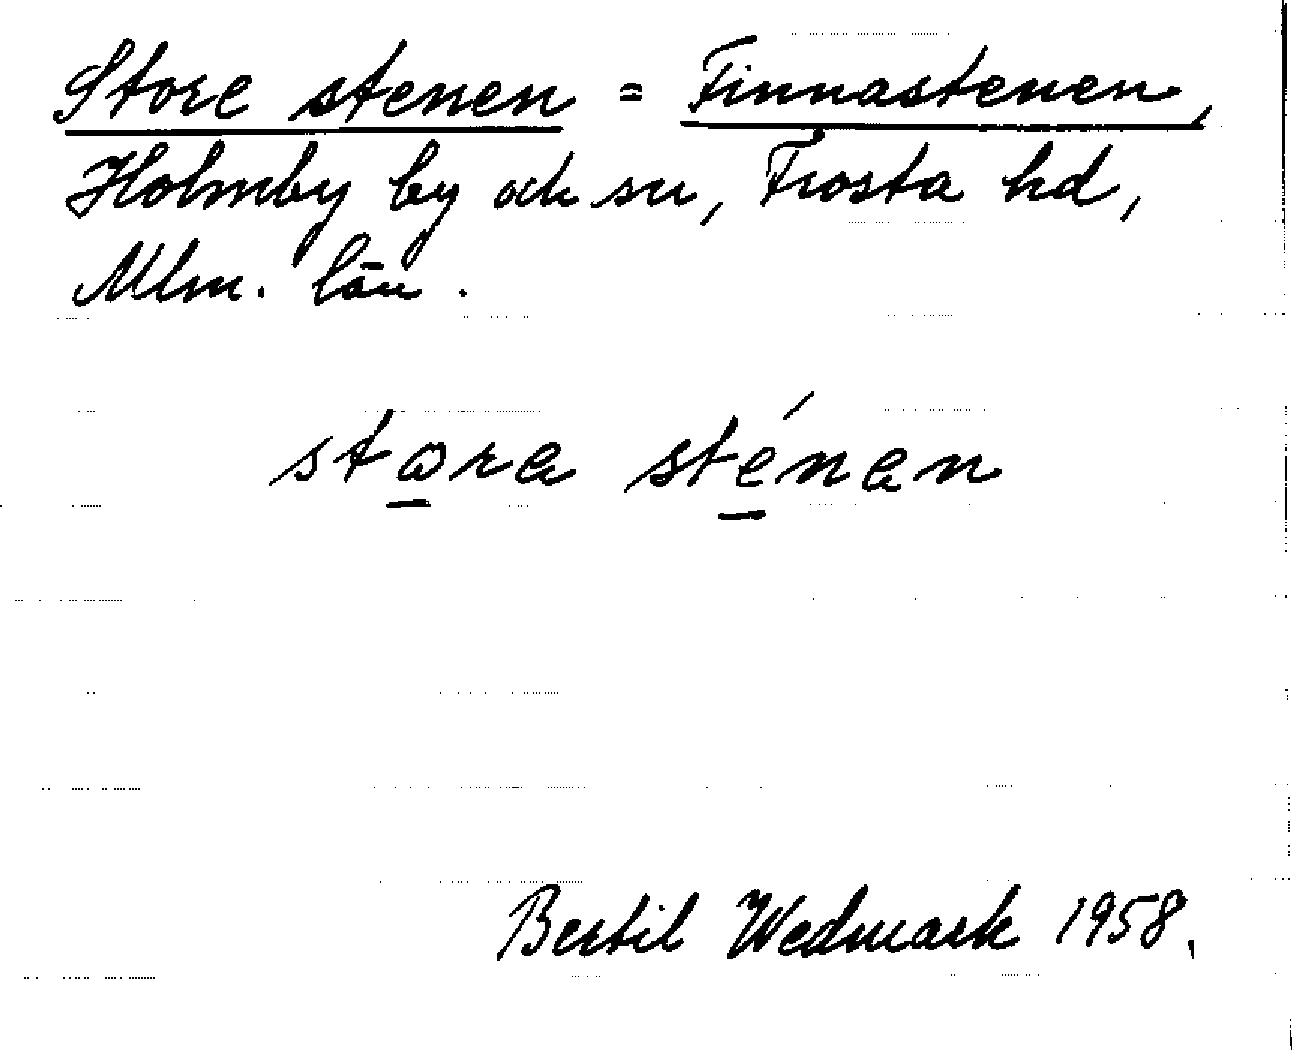 Store stenen = Finnastenen,
Holmby by och sn, Frosta hd,
Mlm. län.
stora sténan
Bertil Wedmark 1958.